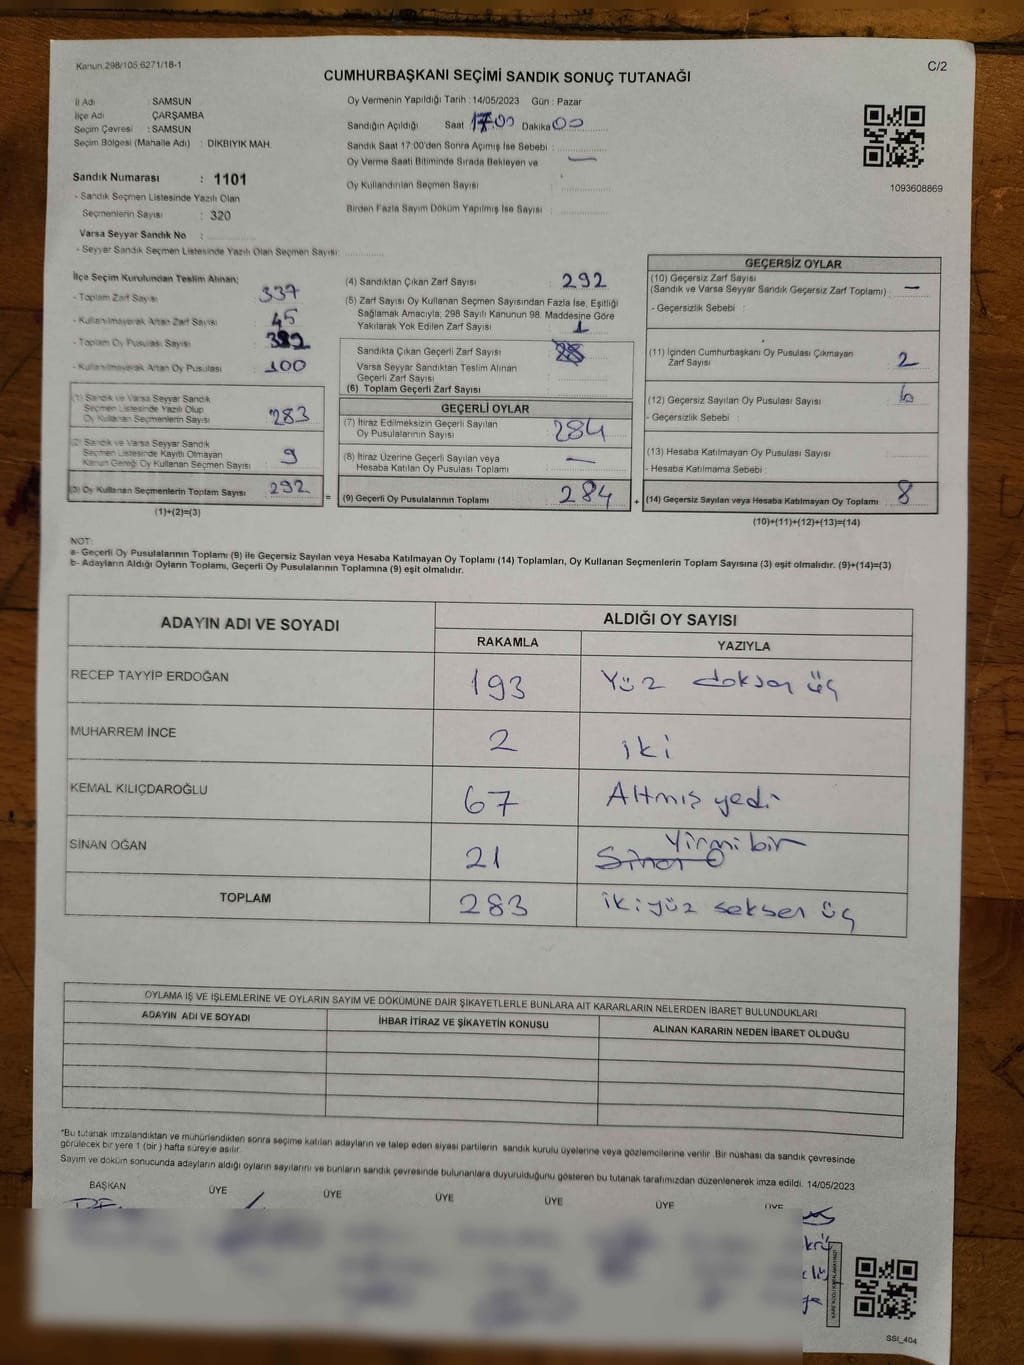 Kanun.298/105.6271/18-1
C/2
CUMHURBAŞKANI SEÇİMİ SANDIK SONUÇ TUTANAĞI
İl Adı SAMSUN
İlçe Adı ÇARŞAMBA
Seçim Çevresi : SAMSUN
Seçim Bölgesi (Mahalle Adı) : DİKBIYIK MAH.
Sandık Numarası : 1101
- Sandık Seçmen Listesinde Yazılı Olan
Seçmenlerin Sayısı : 320
Varsa Seyyar Sandık No :
- Seyyar Sandık Seçmen Listesinde Yazılı Olan Seçmen Sayısı:
Oy Vermenin Yapıldığı Tarih : 14/05/2023 Gün : Pazar
Sandığın Açıldığı Saat 17.00 Dakika 00
Sandık Saat 17:00'den Sonra Açılmış İse Sebebi :
Oy Verme Saati Bitiminde Sırada Bekleyen ve —
Oy Kullandırılan Seçmen Sayısı :
Birden Fazla Sayım Döküm Yapılmış İse Sayısı :
1093608869
İlçe Seçim Kurulundan Teslim Alınan;
- Toplam Zarf Sayısı 337
- Kullanılmayarak Artan Zarf Sayısı 45
- Toplam Oy Pusulası Sayısı
- Kullanılmayarak Artan Oy Pusulası 100
(1) Sandık ve Varsa Seyyar Sandık
Seçmen Listesinde Yazılı Olup
Oy Kullanan Seçmenlerin Sayısı 283
(2) Sandık ve Varsa Seyyar Sandık
Seçmen Listesinde Kayıtlı Olmayan
Kanun Gereği Oy Kullanan Seçmen Sayısı 9
(3) Oy Kullanan Seçmenlerin Toplam Sayısı 292
(1)+(2)=(3)
(4) Sandıktan Çıkan Zarf Sayısı 292
(5) Zarf Sayısı Oy Kullanan Seçmen Sayısından Fazla İse, Eşitliği
Sağlamak Amacıyla; 298 Sayılı Kanunun 98. Maddesine Göre
Yakılarak Yok Edilen Zarf Sayısı 1
Sandıkta Çıkan Geçerli Zarf Sayısı
Varsa Seyyar Sandıktan Teslim Alınan
Geçerli Zarf Sayısı
(6) Toplam Geçerli Zarf Sayısı
GEÇERLİ OYLAR
(7) İtiraz Edilmeksizin Geçerli Sayılan
Oy Pusulalarının Sayısı 284
(8) İtiraz Üzerine Geçerli Sayılan veya
Hesaba Katılan Oy Pusulası Toplamı —
= (9) Geçerli Oy Pusulalarının Toplamı 284 +
GEÇERSİZ OYLAR
(10) Geçersiz Zarf Sayısı
(Sandık ve Varsa Seyyar Sandık Geçersiz Zarf Toplamı) : —
- Geçersizlik Sebebi :
(11) İçinden Cumhurbaşkanı Oy Pusulası Çıkmayan
Zarf Sayısı 2
(12) Geçersiz Sayılan Oy Pusulası Sayısı 6
- Geçersizlik Sebebi :
(13) Hesaba Katılmayan Oy Pusulası Sayısı
- Hesaba Katılmama Sebebi :
(14) Geçersiz Sayılan veya Hesaba Katılmayan Oy Toplamı 8
(10)+(11)+(12)+(13)=(14)
NOT:
a- Geçerli Oy Pusulalarının Toplamı (9) ile Geçersiz Sayılan veya Hesaba Katılmayan Oy Toplamı (14) Toplamları, Oy Kullanan Seçmenlerin Toplam Sayısına (3) eşit olmalıdır. (9)+(14)=(3)
b- Adayların Aldığı Oyların Toplamı, Geçerli Oy Pusulalarının Toplamına (9) eşit olmalıdır.
ADAYIN ADI VE SOYADI ALDIĞI OY SAYISI
RAKAMLA YAZIYLA
RECEP TAYYİP ERDOĞAN 193 Yüz doksan üç
MUHARREM İNCE 2 iki
KEMAL KILIÇDAROĞLU 67 Altmış yedi
SİNAN OĞAN 21 Yirmi bir
Sinan O
TOPLAM 283 iki yüz seksen üç
OYLAMA İŞ VE İŞLEMLERİNE VE OYLARIN SAYIM VE DÖKÜMÜNE DAİR ŞİKAYETLERLE BUNLARA AİT KARARLARIN NELERDEN İBARET BULUNDUKLARI
ADAYIN ADI VE SOYADI İHBAR İTİRAZ VE ŞİKAYETİN KONUSU ALINAN KARARIN NEDEN İBARET OLDUĞU
*Bu tutanak imzalandıktan ve mühürlendikten sonra seçime katılan adayların ve talep eden siyasi partilerin sandık kurulu üyelerine veya gözlemcilerine verilir. Bir nüshası da sandık çevresinde
görülecek bir yere 1 (bir) hafta süreyle asılır.
Sayım ve döküm sonucunda adayların aldığı oyların sayılarını ve bunların sandık çevresinde bulunanlara duyurulduğunu gösteren bu tutanak tarafımızdan düzenlenerek imza edildi. 14/05/2023
BAŞKAN ÜYE ÜYE ÜYE ÜYE ÜYE ÜYE
SSI_404